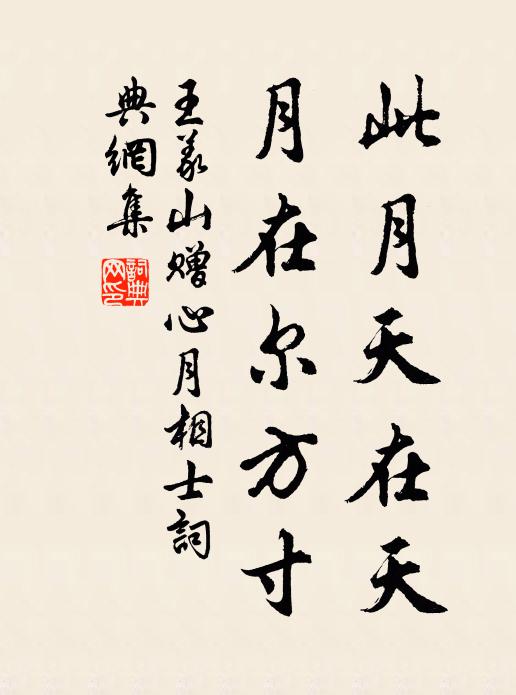 此月天在天
月在尔方寸
王義山赠心月相士詞
典網集
詞典网印